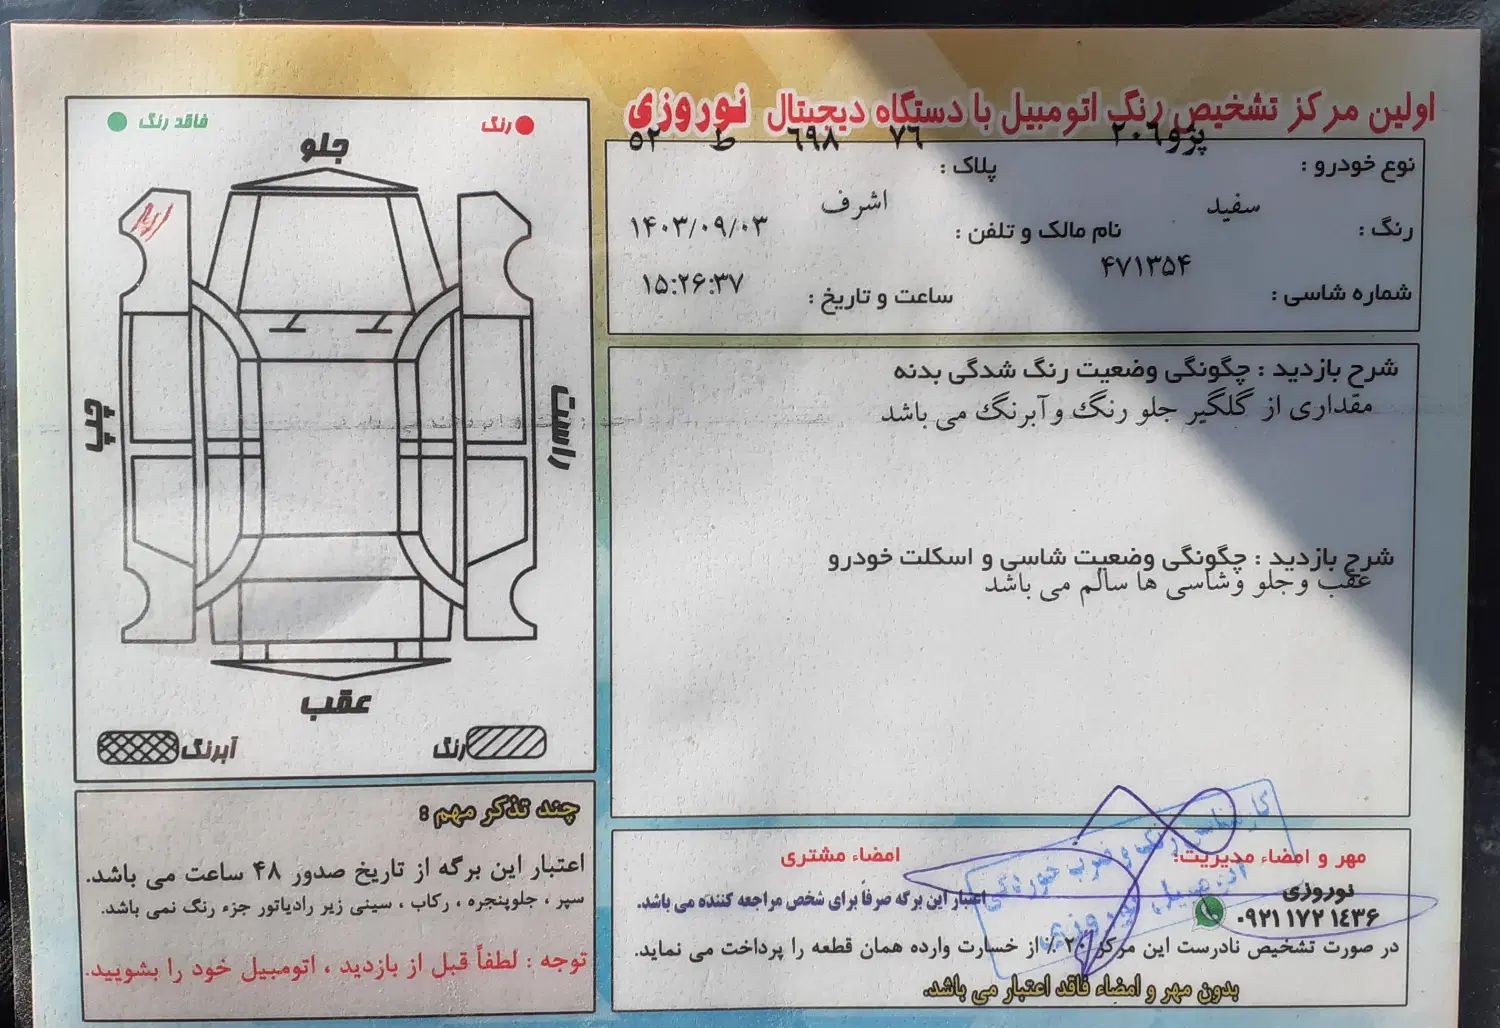 اولین مرکز تشخیص رنگ اتومبیل با دستگاه دیجیتال نوروزی
نوع خودرو : پژو۲۰۶
پلاک : ۷۶ ۶۹۸ ط ۵۲
رنگ : سفید
نام مالک و تلفن : اشرف
۱۴۰۳/۰۹/۰۳
شماره شاسی : ۴۷۱۳۵۴
ساعت و تاریخ : ۱۵:۲۶:۳۷
شرح بازدید : چگونگی وضعیت رنگ شدگی بدنه
مقداری از گلگیر جلو رنگ و آبرنگ می باشد
شرح بازدید : چگونگی وضعیت شاسی و اسکلت خودرو
عقب و جلو و شاسی ها سالم می باشد
مهر و امضاء مدیریت:
امضاء مشتری
نوروزی
۰۹۲۱۱۷۲۱۴۳۶
اعتبار این برگه صرفاً برای شخص مراجعه کننده می باشد.
در صورت تشخیص نادرست این مرکز ۲۰٪ از خسارت وارده همان قطعه را پرداخت می نماید.
بدون مهر و امضاء فاقد اعتبار می باشد.
کارشناسی رنگ و ضرب خوردگی
اتومبیل نوروزی
رنگ
فاقد رنگ
جلو
راست
چپ
عقب
رنگ
آبرنگ
چند تذکر مهم :
اعتبار این برگه از تاریخ صدور ۴۸ ساعت می باشد.
سپر ، جلوپنجره ، رکاب ، سینی زیر رادیاتور جزء رنگ نمی باشد.
توجه : لطفاً قبل از بازدید ، اتومبیل خود را بشویید.